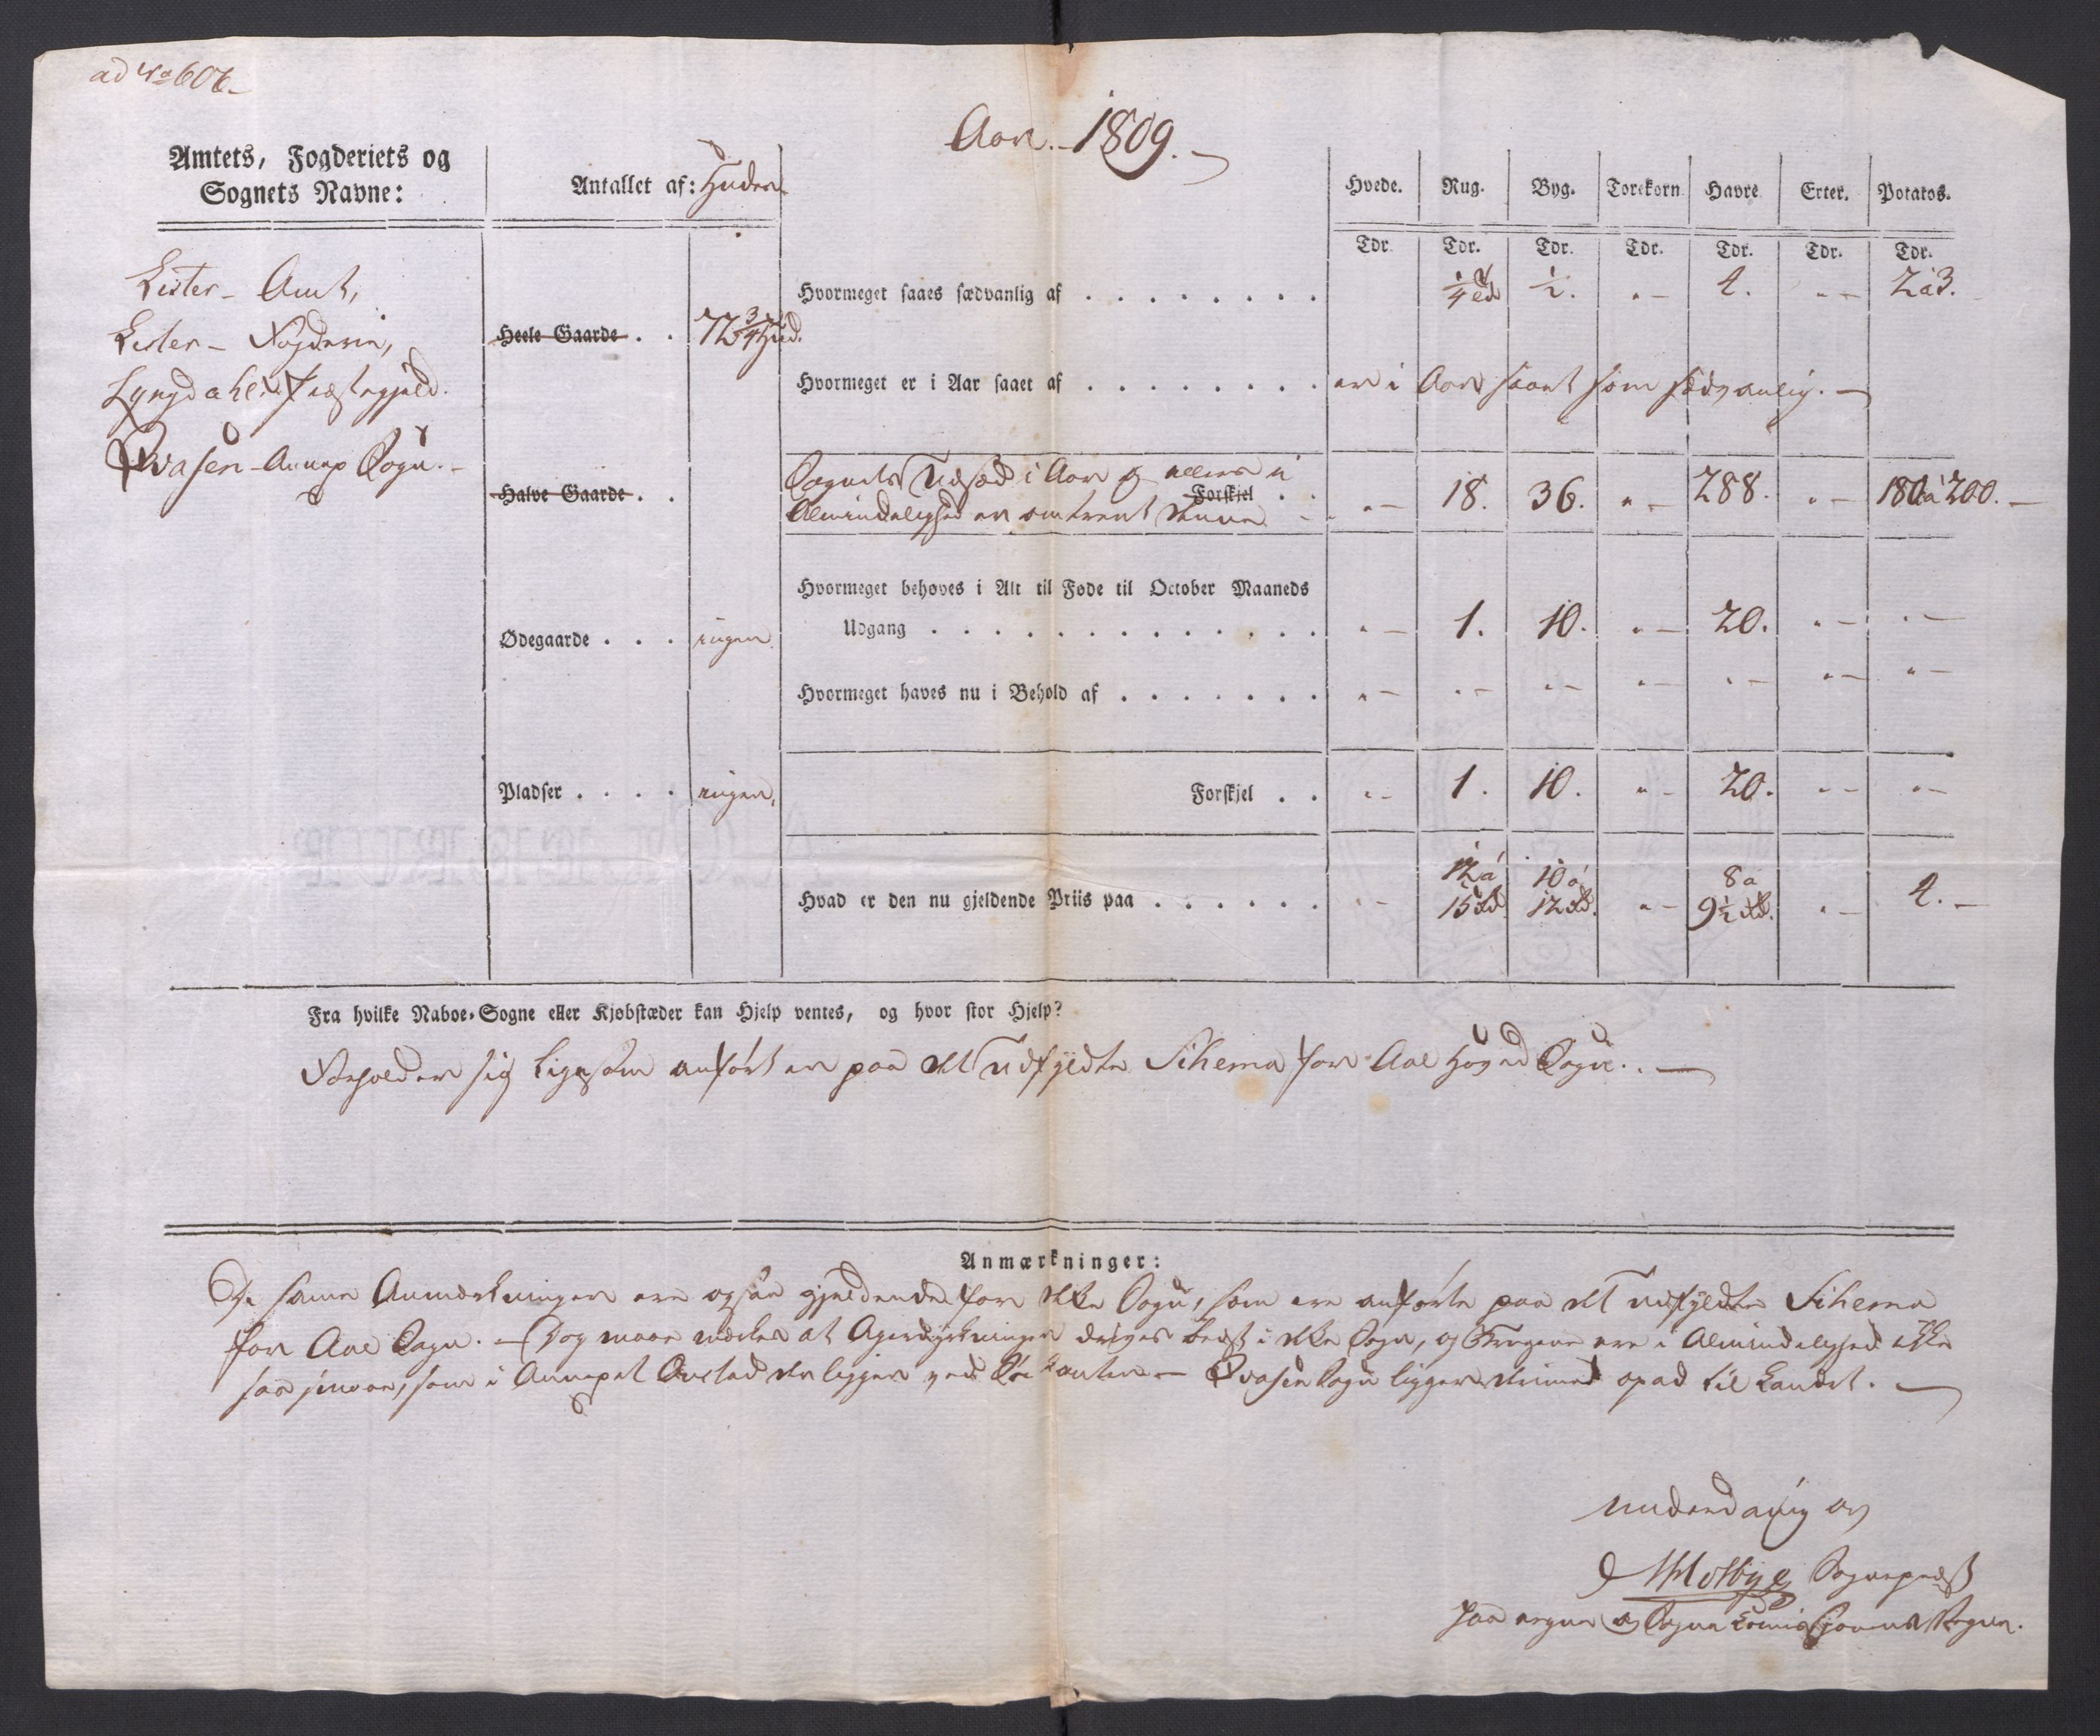 ad No 606
Aar 1809.
Amtets, Fogderiets og
Sognets Navne:
Antallet af: Huder
Hvede. Rug. Byg. Torekorn. Havre Erter. Potatos.
Tdr. Tdr. Tdr. Tdr. Tdr. Tdr. Tdr.
Lister Amt,
Lister Fogderie,
Lyngdahls Præstegjeld.
Qvasen Annex Sogn.
Heele Gaarde . . 72 3/4 Hud.
Halve Gaarde . .
Ødegaarde . . . ingen
Pladser . . . . ingen,
Hvormeget saaes sædvanlig af . . . . . . . . 1/4 1/2. „ — 4. „ — 2 à 3.
Hvormeget er i Aar saaet af . . . . . . . . er i Aar saaet som sædvanlig. —
Sognets Udsæd i Aar og ellers i
Forskjel . .
Almindelighed er omtrent denne „ — 18. 36. „ — 288. „ — 180 à 200. —
Hvormeget behøves i Alt til Føde til October Maaneds
Udgang . . . . . . . . . . . . . „ — 1. 10. „ — 20. „ — „ —
Hvormeget haves nu i Behold af . . . . . . . „ — „ — „ — „ — „ — „ — „ —
Forskjel . . „ — 1. 10. „ — 20. „ — „ —
12 à 10 à 8 a
Hvad er den nu gjeldende Priis paa . . . . . . „ — 15 rd 12 rd. „ — 9 1/2 rd. „ — 4. —
Fra hvilke Naboe-Sogne eller Kjøbstæder kan Hjelp ventes, og hvor stor Hjelp?
Forholder sig ligesom anført er paa det udfyldte Schema for Aae Hoved Sogn. —
Anmærkninger:
De samme Anmærkninger ere ogsaa gjeldende for dette Sogn, som ere anførte paa det udfyldte Schema
for Aae Sogn. — Dog maae mærkes at Agerdyrkningen drives best i dette Sogn, og ere i Almindelighed ikke
saa, som i Annexet Austad der ligger ved Søe kanten — Qvasen Sogn ligger derimod opad til Landet. —
underdanig af
Moltbye Sognepræst
paa egne og Sogne Commissionens Vegne.